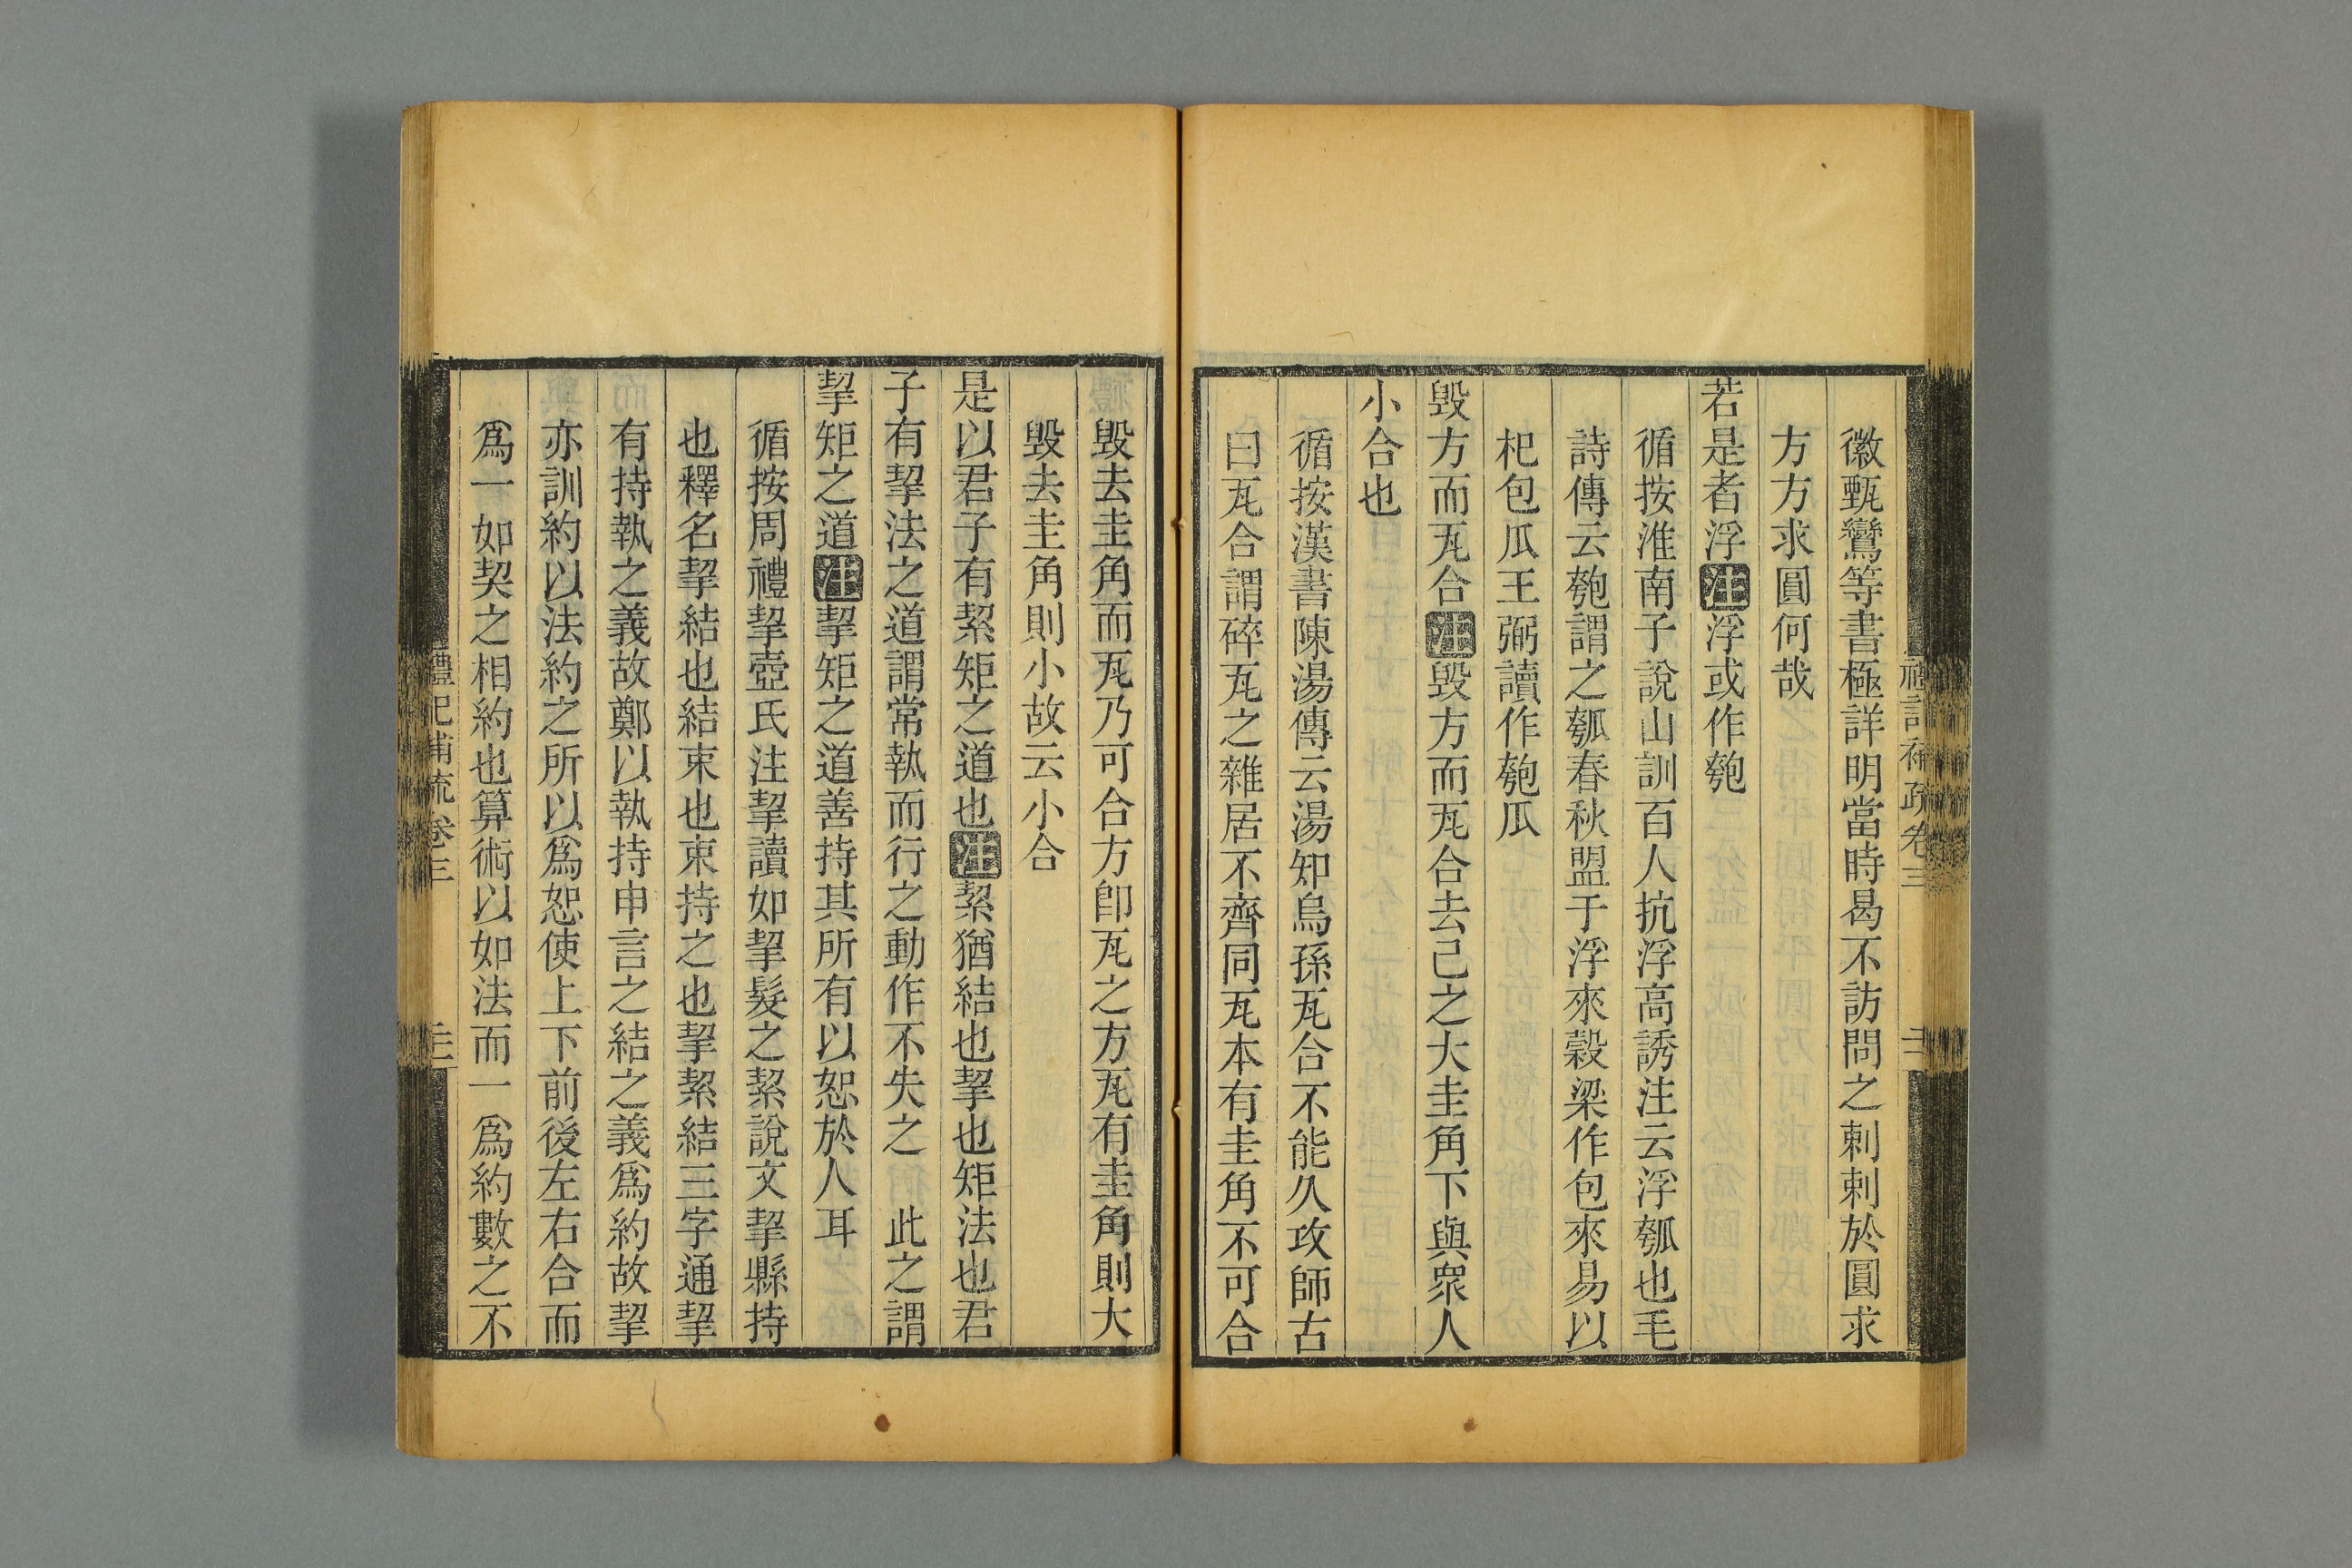 禮記補疏卷三
徽甄鸞等書極詳明當時曷不訪問之剌剌於圓求
方方求圓何哉
若是者浮注浮或作匏
循按淮南子說山訓百人抗浮高誘注云浮瓠也毛
詩傳云匏謂之瓠春秋盟于浮來穀梁作包來易以
杞包瓜王弼讀作匏瓜
毀方而瓦合注毀方而瓦合去己之大圭角下與衆人
小合也
循按漢書陳湯傳云湯知烏孫瓦合不能久攻師古
曰瓦合謂碎瓦之雜居不齊同瓦本有圭角不可合
毀去圭角而瓦乃可合方卽瓦之方瓦有圭角則大
毀去圭角則小故云小合
是以君子有絜矩之道也注絜猶結也挈也矩法也君
子有挈法之道謂常執而行之動作不失之 此之謂
挈矩之道注挈矩之道善持其所有以恕於人耳
循按周禮挈壺氏注挈讀如挈髮之絜說文挈縣持
也釋名挈結也結束也束持之也挈絜結三字通挈
有持執之義故鄭以執持申言之結之義爲約故挈
亦訓約以法約之所以爲恕使上下前後左右合而
爲一如契之相約也算術以如法而一爲約數之不
禮記補疏卷三